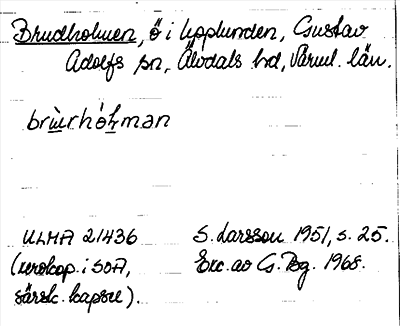 Brudholmen, ö i Upplunden, Gustav
Adolfs sn, Älvdals hd, Värml. län.
brùrhòlman
ULMA 21436 S. Larsson 1951, s. 25.
(xerokop. i SOA, Exc. av G. Bg. 1968.
särsk. kapsel).